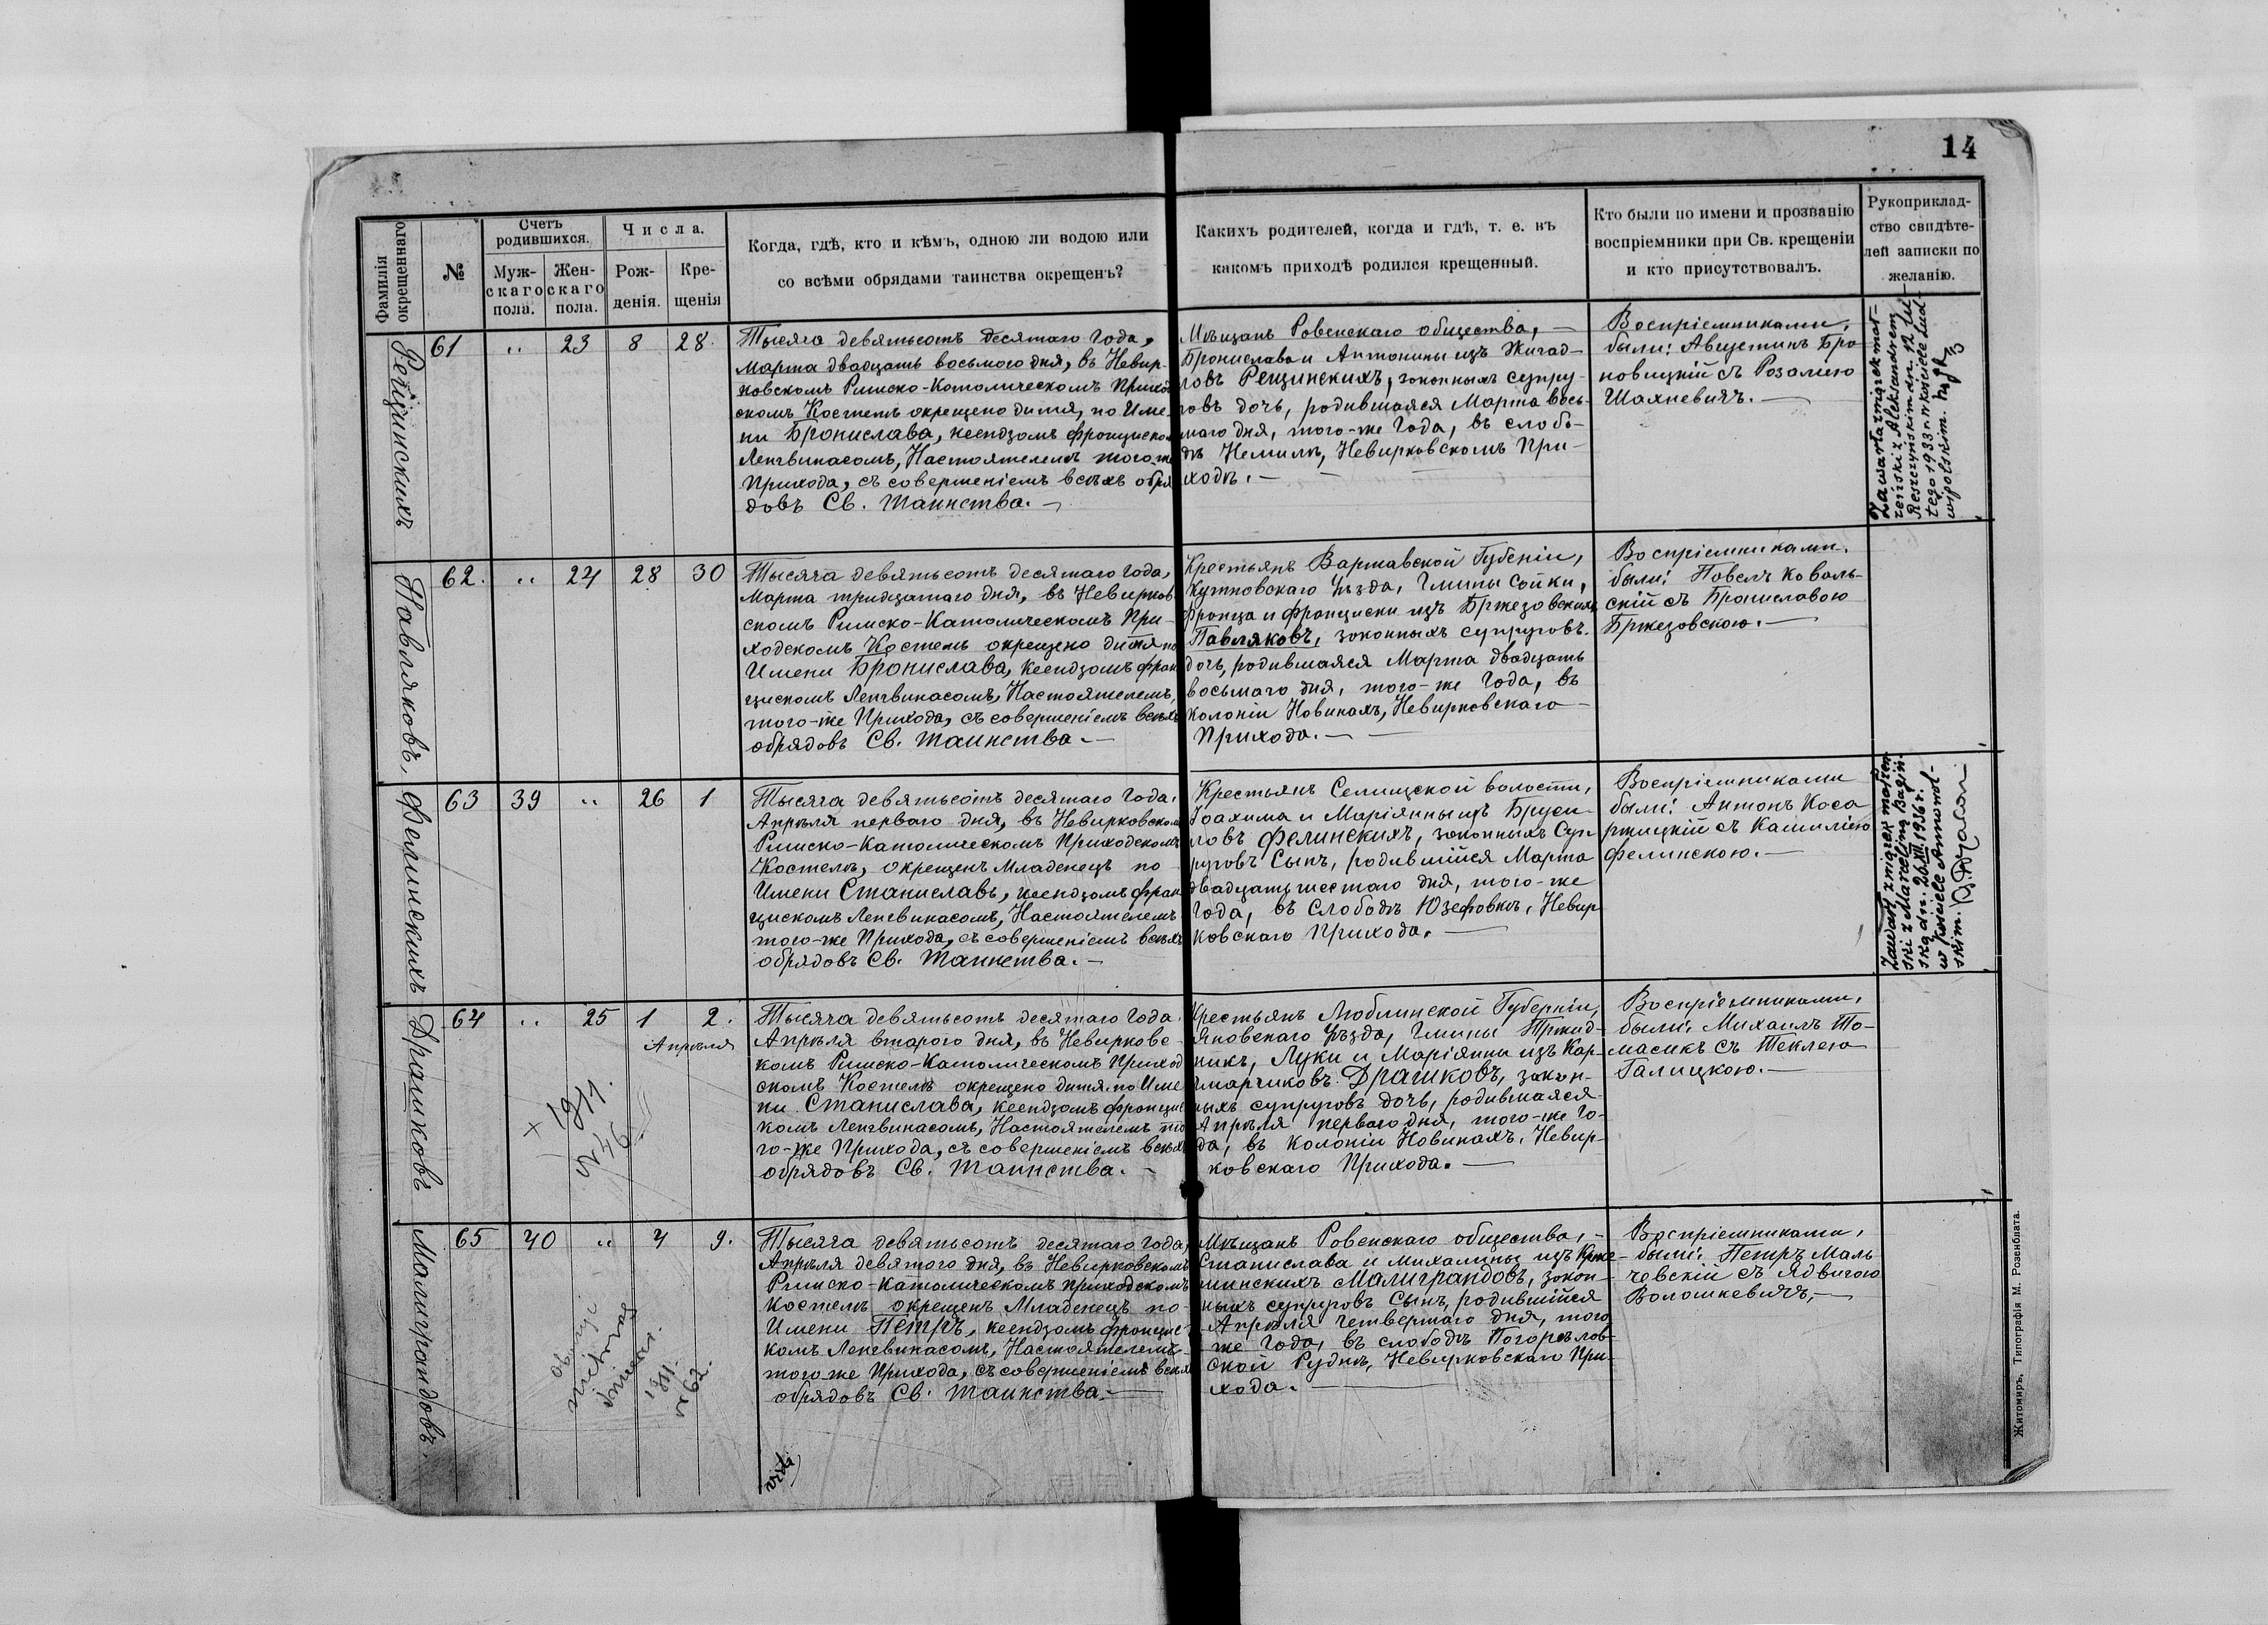 14
Фамилія окрещеннаго
№
Счетъ родившихся.
Муж-
скаго
пола.
Жен-
скаго
пола.
Числа.
Рож-
денія.
Кре-
щенія
Когда, гдѣ, кто и кѣмъ, одною ли водою или
со всѣми обрядами таинства окрещенъ?
Какихъ родителей, когда и гдѣ, т. е. въ
какомъ приходѣ родился крещенный.
Кто были по имени и прозванію
воспріемники при Св. крещеніи
и кто присутствовалъ.
Рукоприклад-
ство свидѣте-
лей записки по
желанію.
Рещинскихъ
61 „ 23 8 28.
Тысяча девятьсотъ десятаго года,
Марта двадцать восьмого дня, въ Невир-
ковскомъ Римско-Католическомъ Приход
скомъ Костелѣ окрещено дитя, по Име-
ни Бронислава, ксендзомъ Францискомъ
Ленгвинасомъ, Настоятелемъ того-же
Прихода, съ совершеніемъ всѣхъ обря
довъ Св. Таинства.—
Мѣщанъ Ровенскаго общества, —
Бронислава и Антонины изъ Жигад-
ловъ Рещинскихъ, законныхъ супру-
говъ дочь, родившаяся Марта вось-
маго дня, того-же Года, въ слобо-
дѣ Немиля, Невирковскомъ При-
ходѣ.—
Воспріемниками,
были: Августинъ Бро
новицкій съ Розаліею
Шахневичъ.—
Zawarła związek mał-
żeński z Aleksandrem
Reszczyńskim dn. 12 lu-
tego 1933 r. w kościele Lud-
wipolskim.
Павляковъ,
62. „ 24 28 30
Тысяча девятьсотъ десятаго года,
Марта тридцатаго дня, въ Невирков
скомъ Римско-Католическомъ При-
ходскомъ Костелѣ окрещено дитя по
Имени Бронислава, ксендзомъ Фран
цискомъ Ленгвинасомъ, Настоятелемъ,
того-же Прихода, съ совершеніемъ всѣхъ
обрядовъ Св. Таинства.—
Крестьянъ Варшавской Губеніи,
Кутновскаго Уѣзда, Гмины Сойки,
Франца и Франциски изъ Бржезовскихъ
Павляковъ, законныхъ супруговъ.
дочь, родившаяся Марта двадцать
восьмаго дня, того-же Года, въ
колоніи Новинахъ, Невирковскаго —
Прихода.—
Воспріемниками.
были: Павелъ Коваль-
скій съ Брониславою
Бржезовскою.—
Фелинскихъ
63 39 „ 26 1
Тысяча девятьсотъ десятаго года,
Апрѣля перваго дня, въ Невирковскомъ
Римско-Католическомъ Приходскомъ
Костелѣ, окрещенъ Младенецъ по-
Имени Станиславъ, ксендзомъ Фран
цискомъ Ленгвинасомъ, Настоятелемъ
того-же Прихода, съ совершеніемъ всѣхъ
обрядовъ Св. Таинства.—
Крестьянъ Селищской волости,
Іоахима и Маріянны изъ Бруси-
ловъ Фелинскихъ, законныхъ Суп-
руговъ Сынъ, родившійся Марта
двадцать шестого дня, того-же
Года, въ Слободѣ Юзефовкѣ, Невир
ковскаго Прихода.—
Воспріемниками
были: Антонъ Коса
ржицкій съ Камиліею
Фелинскою.—
Zawarł związek małżeń-
ski z Marceliną Bagiń-
ską dn. 26.XII.1936 r.
w kościele Antonol-
skim.
Драшковъ
64 „ 25 1 2.
Апрѣля
Тысяча девятьсотъ десятаго Года.
Апрѣля второго дня, въ Невирковс-
комъ Римско-Католическомъ Приход
скомъ Костелѣ окрещено дитя по Име
ни Станислава, ксендзомъ Францис
комъ Ленгвинасомъ, Настоятелемъ то
го-же Прихода, съ совершеніемъ всѣхъ
обрядовъ Св. Таинства.—
Крестьянъ Люблинской Губерніи,
Яновскаго Уѣзда, Гмины Тржид-
никъ, Луки и Маріянны изъ Кар-
чмарчиковъ Драшковъ, закон-
ныхъ супруговъ дочь, родившаяся
Апрѣля перваго дня, того-же Го-
да, въ колоніи Новинахъ, Невир-
ковскаго Прихода.—
Воспріемниками,
были: Михаилъ То-
масикъ съ Теклею
Галицкою.—
Малиграндовъ.
65 40 „ 4 9.
Тысяча девятьсотъ десятаго Года,
Апрѣля девятого дня, въ Невирковскомъ
Римско-Католическомъ приходскомъ
Костелѣ окрещенъ Младенецъ по-
Имени Петръ, ксендзомъ Францис
комъ Ленгвинасомъ, Настоятелемъ
того же Прихода, съ совершеніемъ всѣхъ
обрядовъ Св. Таинства.—
Мѣщанъ Ровенскаго общества, -
Станислава и Михалины изъ Крже-
минскихъ Малиграндовъ, закон-
ныхъ супруговъ Сынъ, родившійся
Апрѣля четвертаго дня, того
же Года, въ слободѣ Погорѣлов-
ской Руднѣ, Невирковскаго При-
хода.—
Воспріемниками,
были: Петръ Маль
чевскій съ Ядвигою
Волошкевичъ,—
Житомиръ, Типографія М. Розенблата.